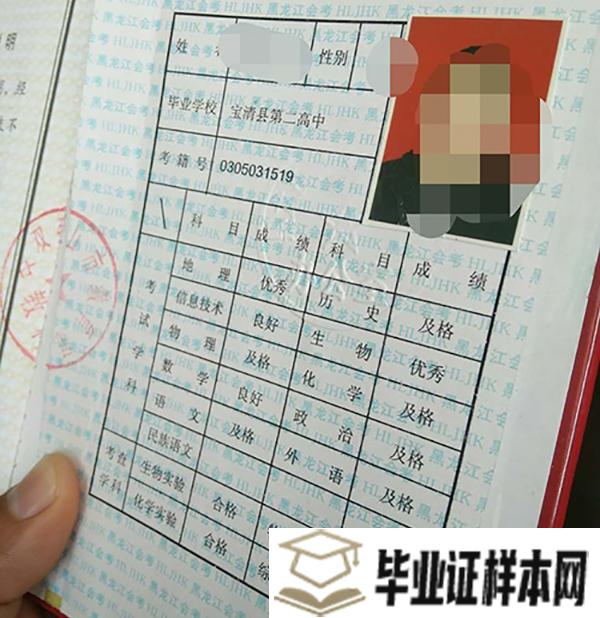 明
经
不
黑龙江会考 HLJHK
姓 性别
毕业学校 宝清县第二高中
考籍号 0305031519
科目 成绩 科目 成绩
考试学科
地理 优秀 历史 及格
信息技术 良好 生物 优秀
物理 及格 化学 及格
数学 良好 政治 及格
语文 及格 外语 及格
考查学科
民族语文
生物实验 合格
化学实验 合格 综
毕业证样本网